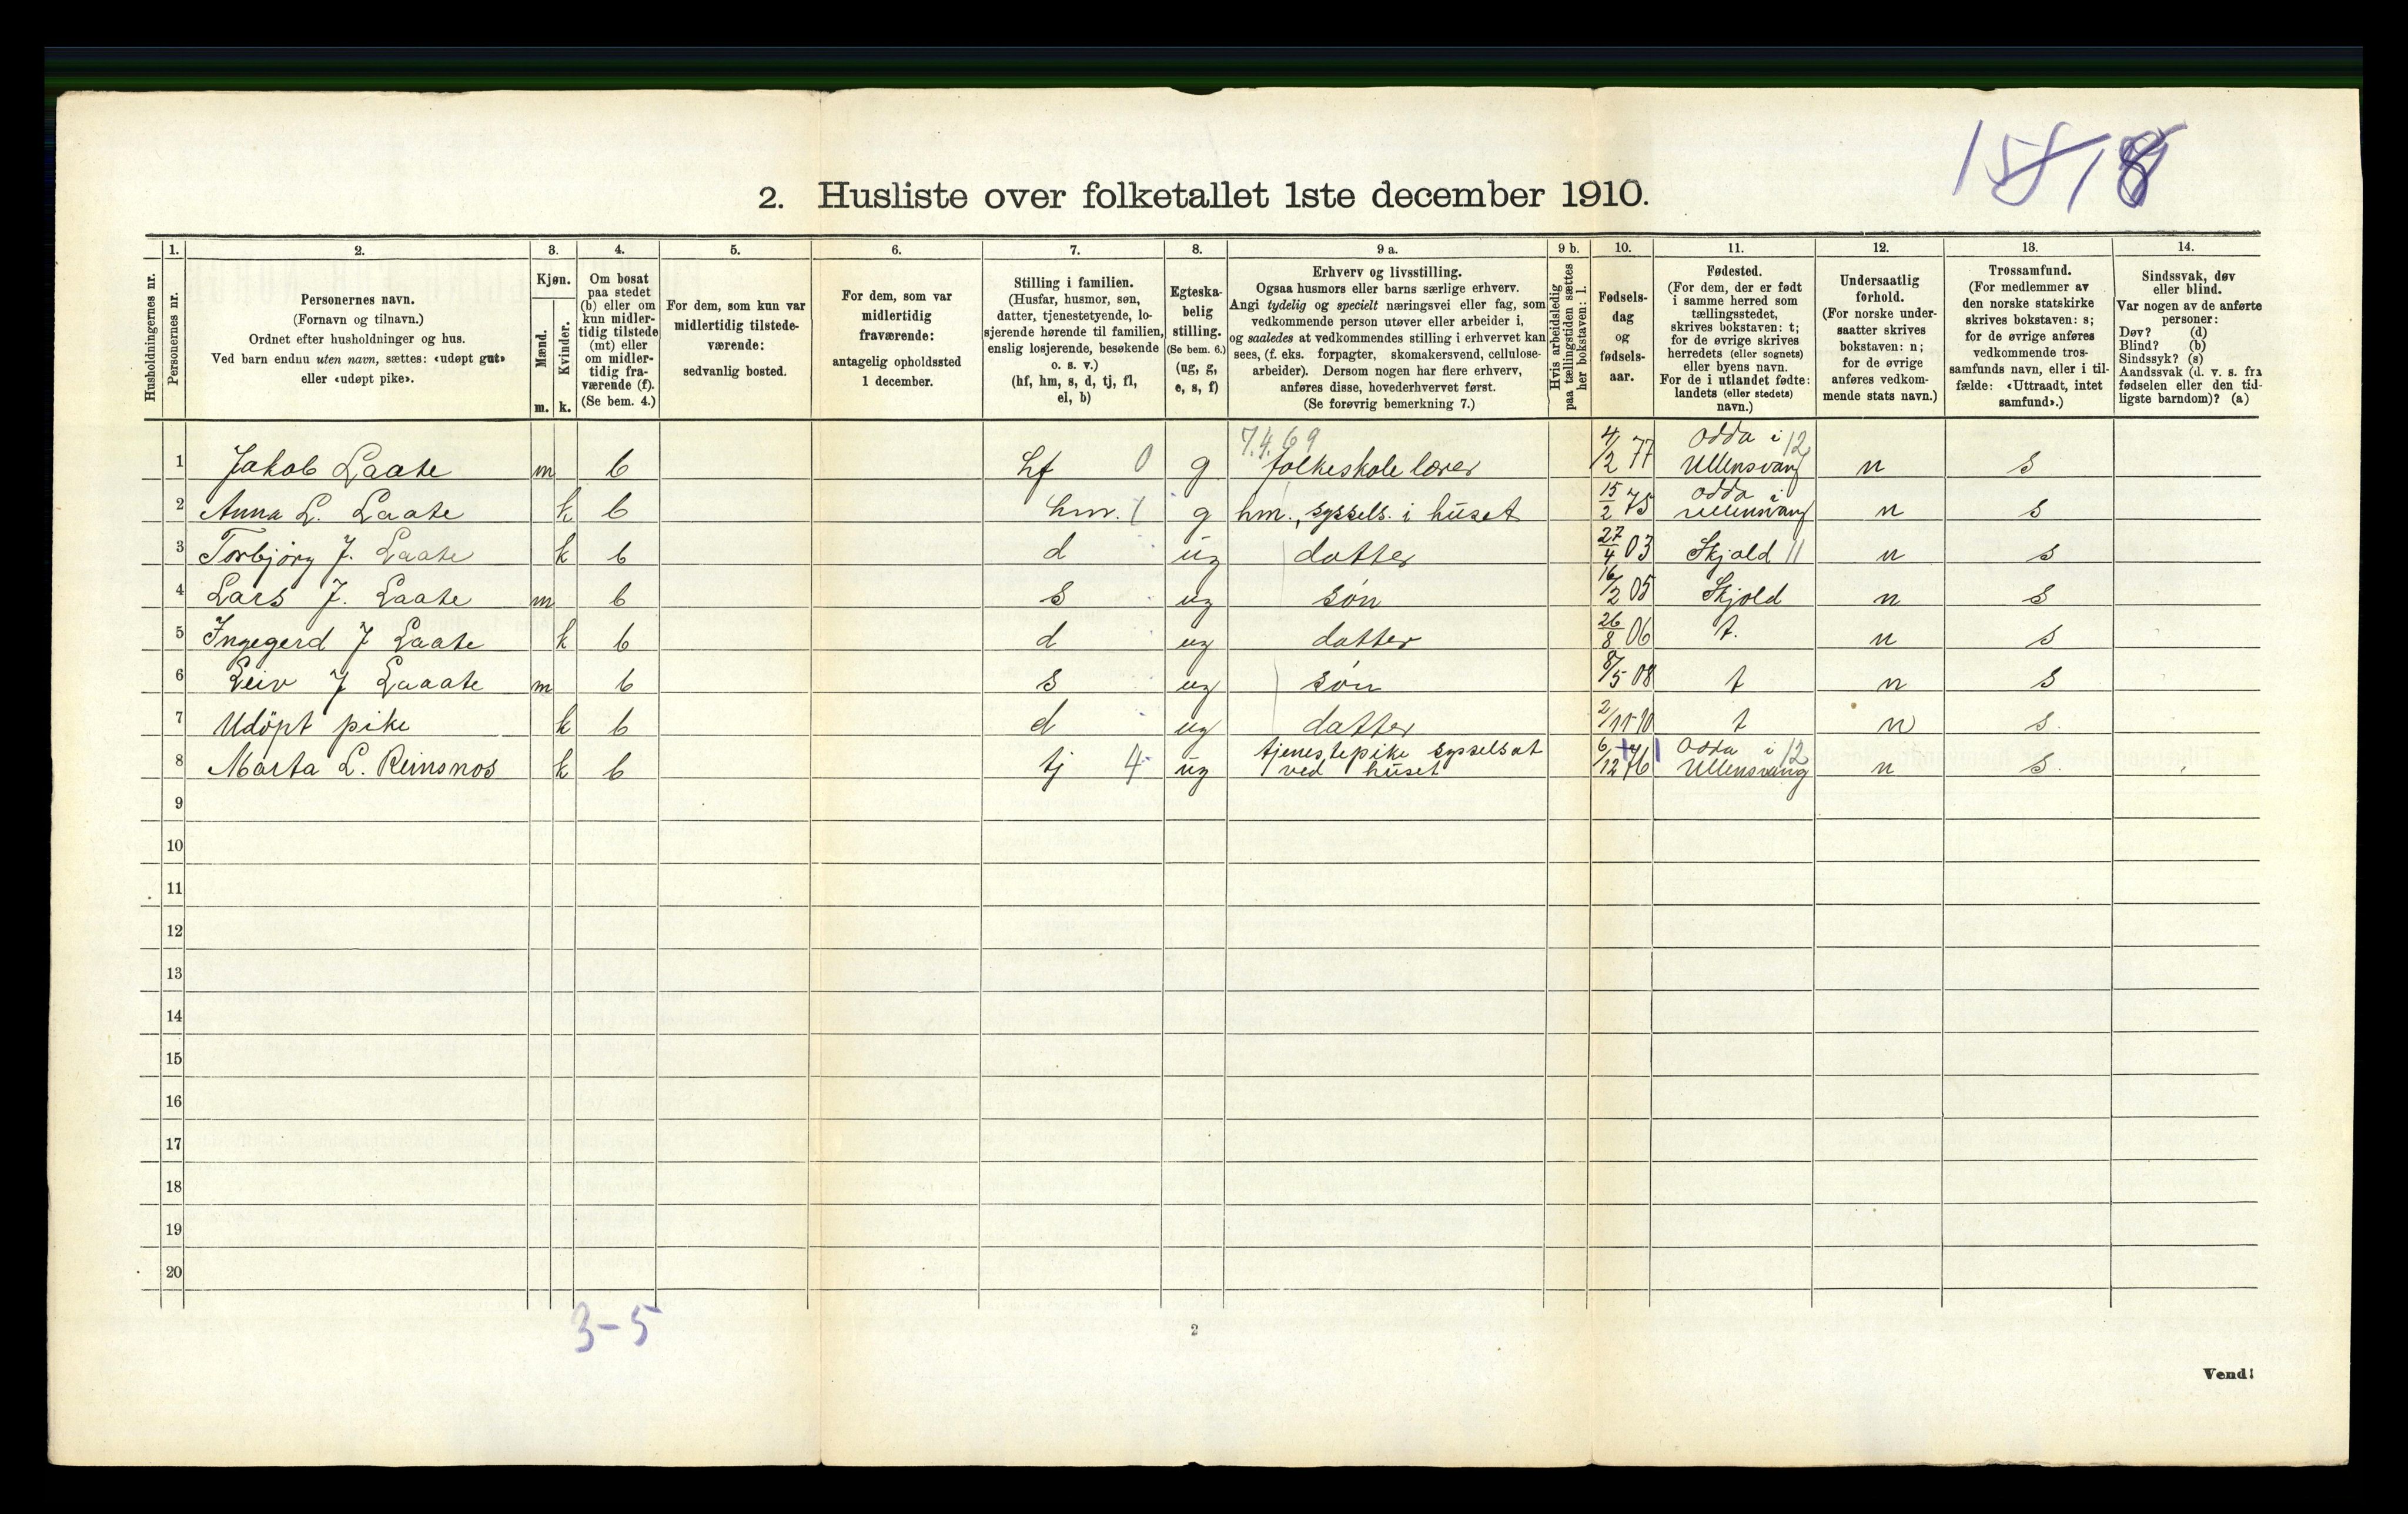 2. Husliste over folketallet 1ste december 1910.
1. 2. 3. 4. 5. 6. 7. 8. 9 a. 9 b. 10. 11. 12. 13. 14.
Husholdningernes nr.
Personernes nr.
Personernes navn.
(Fornavn og tilnavn.)
Ordnet efter husholdninger og hus.
Ved barn endnu uten navn, sættes: «udøpt gut»
eller «udøpt pike».
Kjøn.
Mænd.
Kvinder.
m. k.
Om bosat
paa stedet
(b) eller om
kun midler-
tidig tilstede
(mt) eller
om midler-
tidig fra-
værende (f).
(Se bem. 4.)
For dem, som kun var
midlertidig tilstede-
værende:
sedvanlig bosted.
For dem, som var
midlertidig
fraværende:
antagelig opholdssted
1 december.
Stilling i familien.
(Husfar, husmor, søn,
datter, tjenestetyende, lo-
sjerende hørende til familien,
enslig losjerende, besøkende
o. s. v.)
(hf, hm, s, d, tj, fl,
el, b)
Egteska-
belig
stilling.
(Se bem. 6.)
(ug, g,
e, s, f)
Erhverv og livsstilling.
Ogsaa husmors eller barns særlige erhverv.
Angi tydelig og specielt næringsvei eller fag, som
vedkommende person utøver eller arbeider i,
og saaledes at vedkommendes stilling i erhvervet kan
sees, (f. eks. forpagter, skomakersvend, cellulose-
arbeider). Dersom nogen har flere erhverv,
anføres disse, hovederhvervet først.
(Se forøvrig bemerkning 7.)
Hvis arbeidsledig
paa tællingstiden sættes
her bokstaven: l.
Fødsels-
dag
og
fødsels-
aar.
Fødested.
(For dem, der er født
i samme herred som
tællingsstedet,
skrives bokstaven: t;
for de øvrige skrives
herredets (eller sognets)
eller byens navn.
For de i utlandet fødte:
landets (eller stedets)
navn.)
Undersaatlig
forhold.
(For norske under-
saatter skrives
bokstaven: n;
for de øvrige
anføres vedkom-
mende stats navn.)
Trossamfund.
(For medlemmer av
den norske statskirke
skrives bokstaven: s;
for de øvrige anføres
vedkommende tros-
samfunds navn, eller i til-
fælde: «Uttraadt, intet
samfund».)
Sindssvak, døv
eller blind.
Var nogen av de anførte
personer:
Døv? (d)
Blind? (b)
Sindssyk? (s)
Aandssvak (d. v. s. fra
fødselen eller den tid-
ligste barndom)? (a)
7.4.69 Odda i 12
1 Jakob Laate m b hf 0 g folkeskolelærer 4/2 77 Ullensvang n s
Odda i
2 Anna L. Laate k b hm. 1 g hm., syssels. i huset 15/2 75 Ullensvang n s
3 Torbjørg J. Laate k b d ug datter 27/4 03 Skjold 11 n s
4 Lars J. Laate m b s ug søn 16/2 05 Skjold n s
5 Ingegerd J Laate k b d ug datter 26/8 06 t. n s
6 Leiv J Laaate m b s ug søn 8/5 08 t n s
7 Udöpt pike k b d ug datter 2/11-10 t n s.
tjenestepike sysselsat Odda i 12
8 Marta L. Reinsnos k b tj 4 ug ved huset 6/12 76 Ullensvang n s.
9
10
11
12
13
14
15
16
17
18
19
20
3-5
2
Vend!